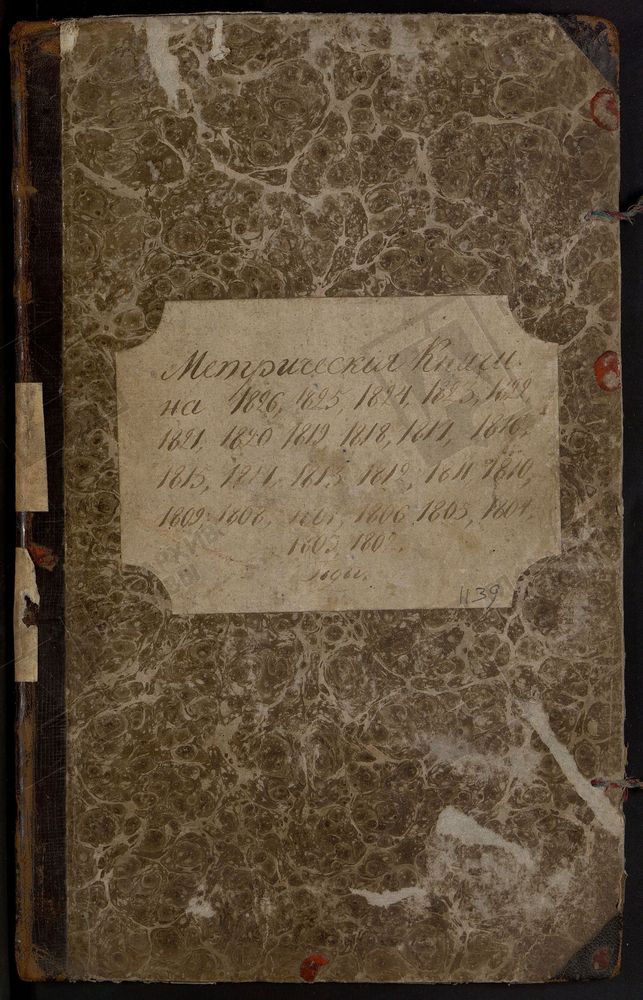 Метрическия Книги.
на 1826, 1825, 1824, 1823, 1822
1821, 1820 1819 1818, 1817, 1816,
1815, 1814, 1813 1812, 1811 1810,
1809, 1808, 1807, 1806 1805, 1804,
1803 1802.
годы.
1139